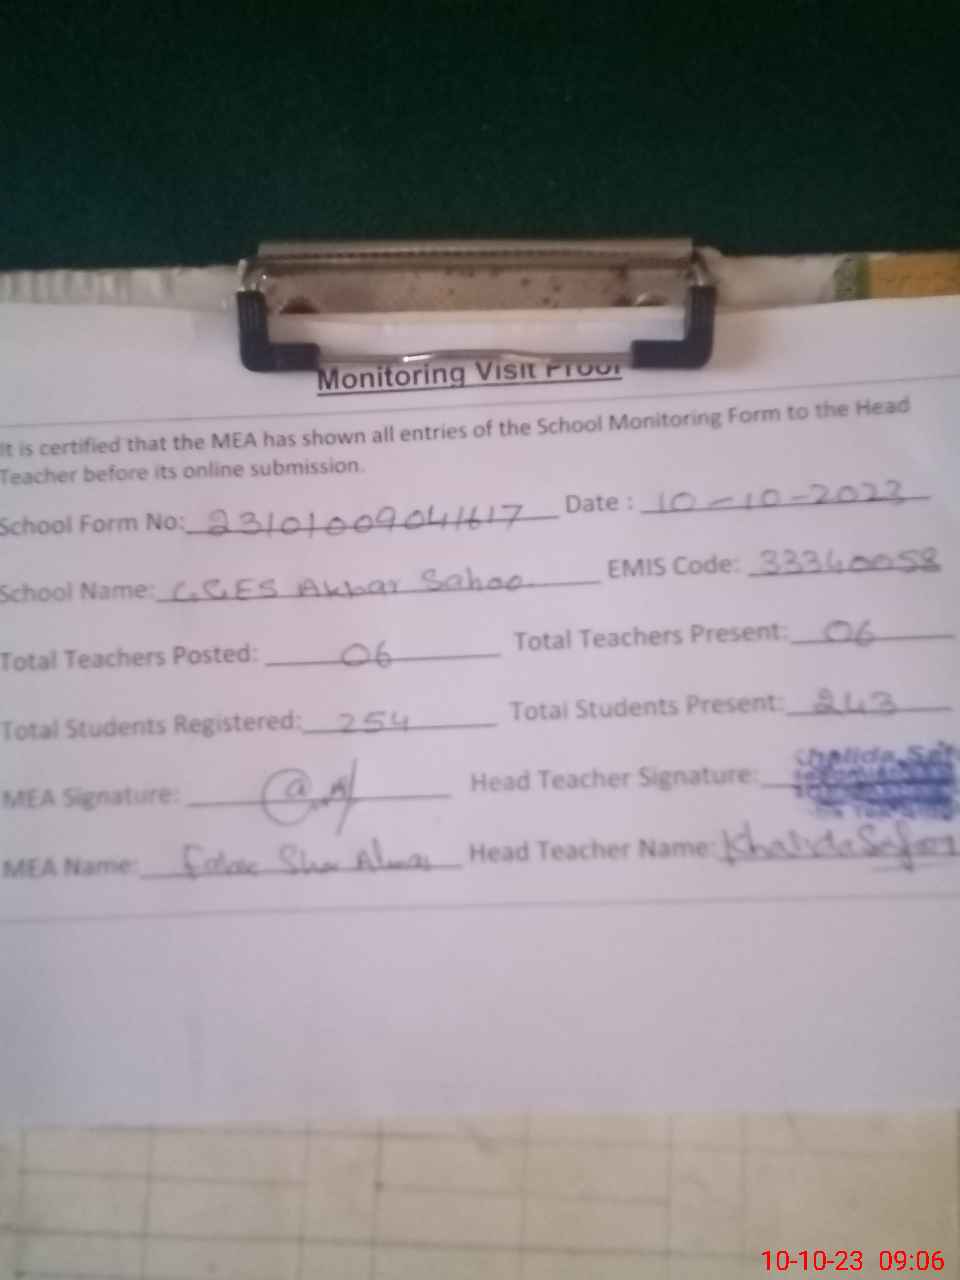 Monitoring Visit Proof
It is certified that the MEA has shown all entries of the School Monitoring Form to the Head
Teacher before its online submission.
School Form No: 23101009041617 Date : 10-10-2023
School Name: GGES Akbar Sahoo EMIS Code: 33340058
Total Teachers Posted: 06 Total Teachers Present: 06
Total Students Registered: 254 Total Students Present: 243
MEA Signature: Head Teacher Signature: Khalida
MEA Name: Head Teacher Name: Khalida Safdar
10-10-23 09:06